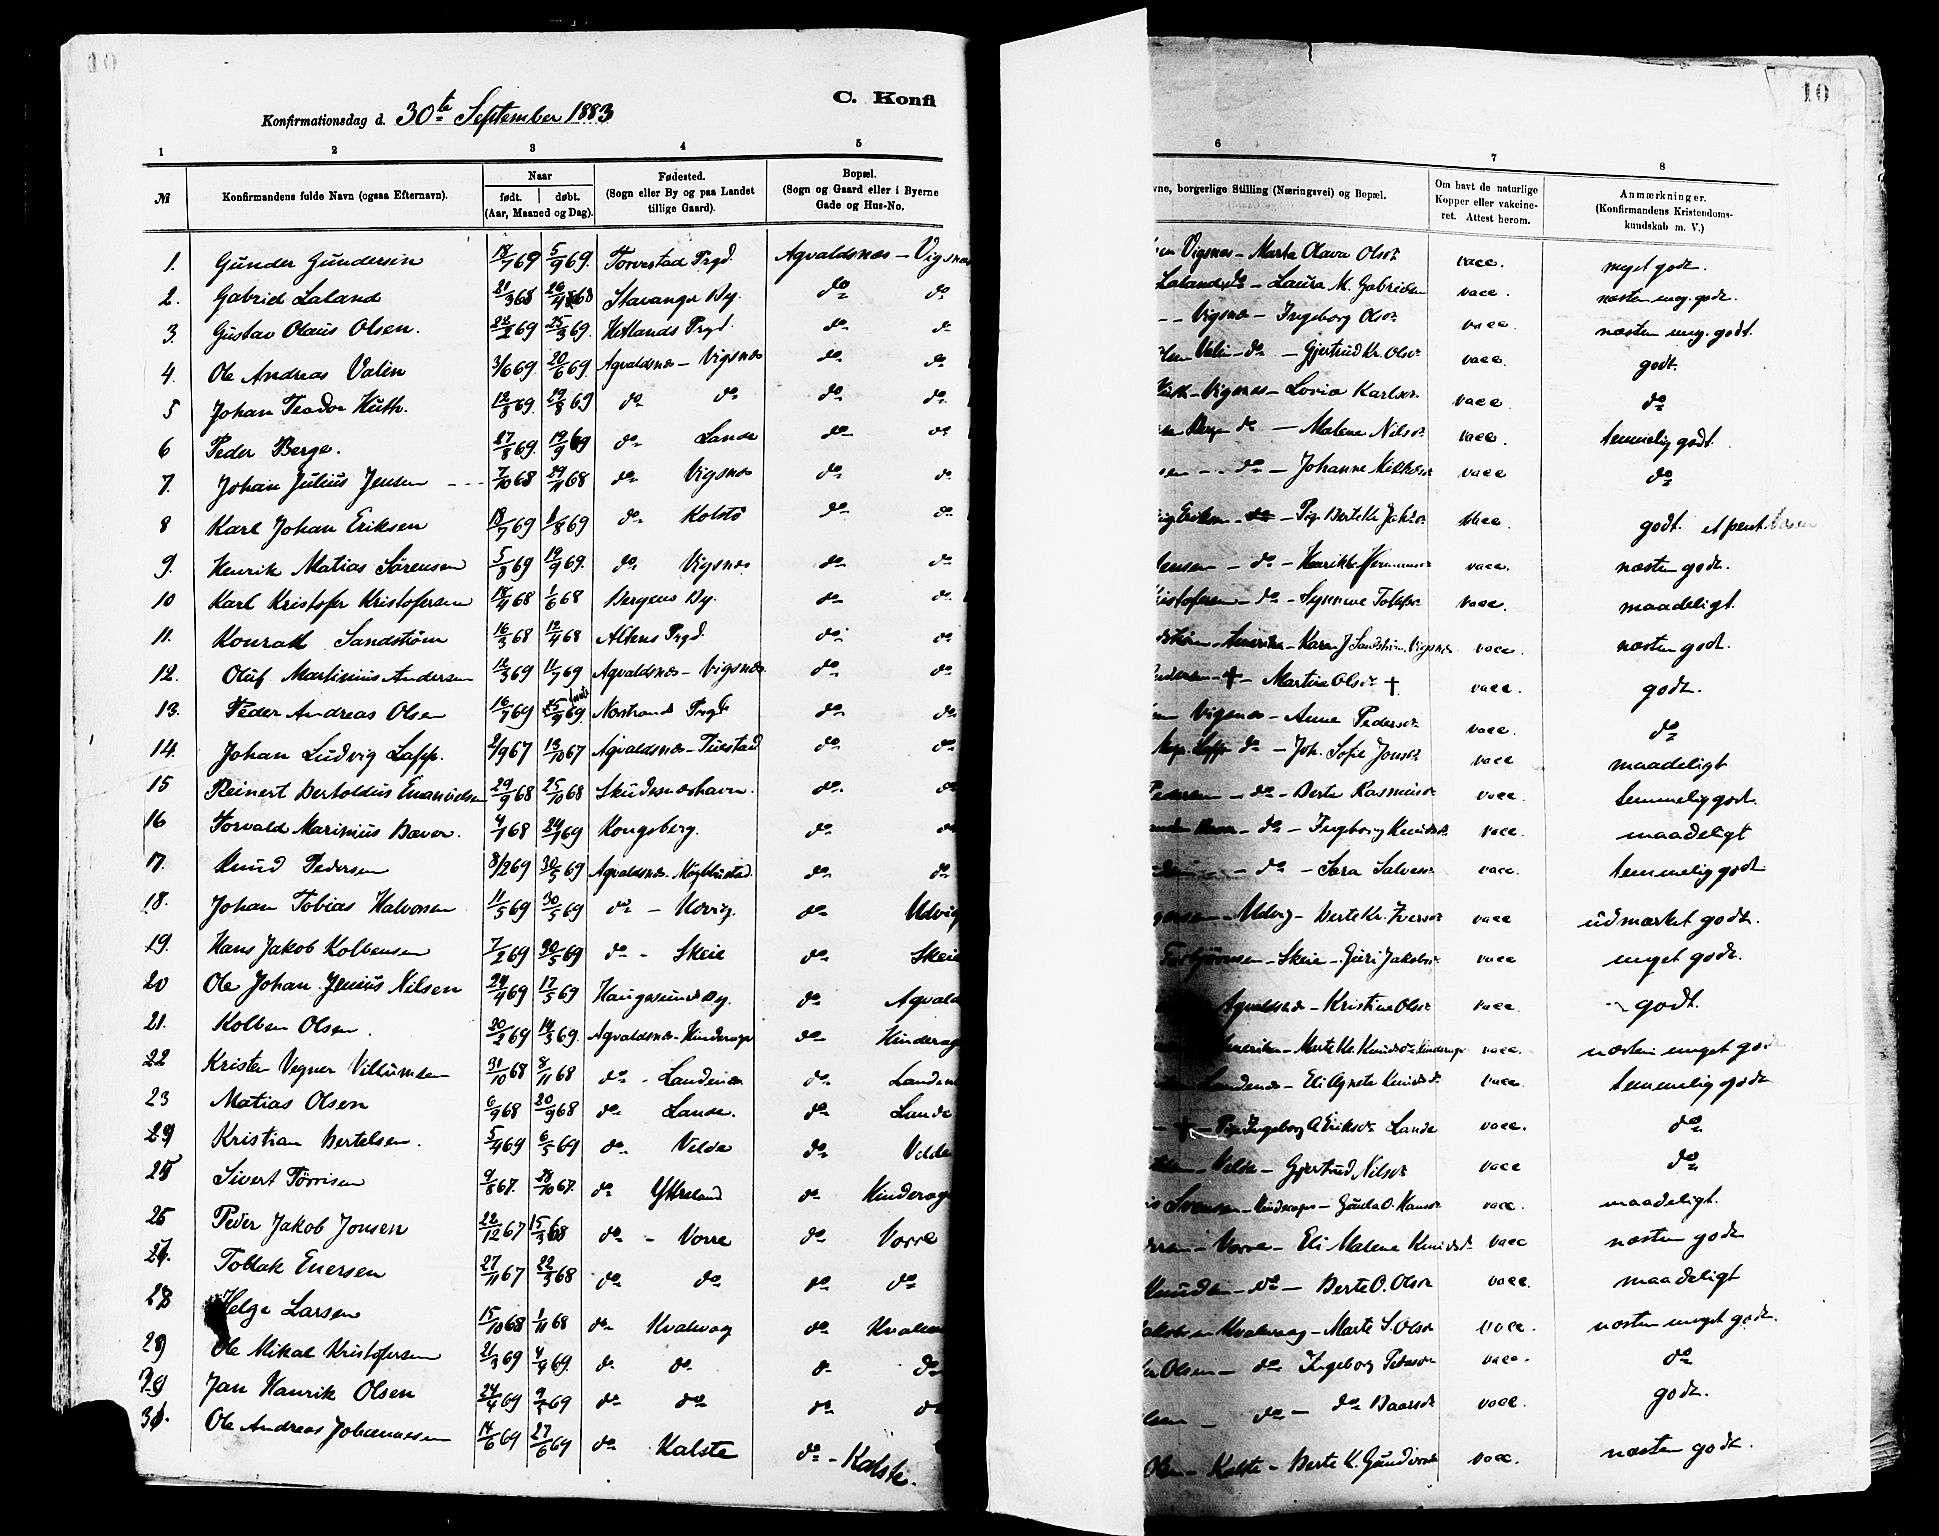 10
C. Konfi
Konfirmationsdag d. 30te September 1883
1 2 3 4 5
№ Konfirmandens fulde Navn (ogsaa Efternavn). Naar født. døbt. (Aar, Maaned og Dag). Fødested. (Sogn eller By og paa Landet tillige Gaard). Bopæl. (Sogn og Gaard eller i Byerne Gade og Hus-No.
1. Gunder Gundersen 18/7 69 5/9 69. Torvestad Prgd. Agvaldsnæs - Vigsnæs
2. Gabriel Laland 21/3 68 26/4 68 Stavanger By. do do
3. Gustav Olaus Olsen. 22/2 69 25/3 69. Hetlands Prgd. do do
4. Ole Andreas Valin 3/6 69 20/6 69. Agvaldsnæs - Vigsnæs do do
5 Johan Teodor Huth. do do do do
6 Peder Berge. 27/8 69. 19/9 69 do Lande do do
7. Johan Julius Jensen 7/10 68 29/11 68 do Vigsnæs do do
8 Karl Johan Eriksen 18/7 69 1/8 69 do Kolstö do do
9. Henrik Matias Sørensen 5/8 69 19/9 69. do Vigsnæs do do
10 Karl Kristofer Kristofersen 18/4 68 1/6 68 Bergens By. do do
11. Konrad Sandstrøm 16/3 68 12/4 68 Altens Prgd. do do
12. Oluf Martinius Andersen 12/3 69 11/7 69 Agvaldsnæs - Vigsnæs do do
13. Peder Andreas Olsen 16/7 69 25/9 69. Nærstrands Prgd do do
14. Johan Ludvig Lapp. 2/9 67 13/10 67 Agvaldsnæs - do do
15 Reinert Bertoldus Emanuelsen 29/9 68 25/10 68 Skudesneshavn. do do
16 Torvald Marinius Bover. 4/1 68 24/1 69 Kongsberg. do do
17. Knud Pedersen 8/2 69 30/5 69 Agvaldsnæs do do
18. Johan Tobias Halvorsen 11/5 69 30/5 69 do - Udvig. do Udvig
19. Hans Jakob Kolbensen 7/2 69 30/5 69 do - Skeie do Skeie
20 Ole Johan Jenius Nilsen 24/4 69 17/5 69 Haugesunds By. do Agvald
21. Kolben Olsen. 20/2 69 14/3 69. Agvaldsnæs - Hinderager do Hinderag
22 Krister Vegner Villumsen 31/10 68 8/11 68 do - Landenes do Landen
23 Matias Olsen 6/9 68 20/9 68 do Lande. do Lande
24 Kristian Bertelsen. 5/4 69 6/5 69 do Velde do Velde
25 Sivert Törrisen 9/8 67. 28/10 67. do Ytreland do Hinderag
26 Peder Jakob Jonsen 22/12 67 15/3 68 do - Vorre do Vorre
27. Tollak Enersen 27/11 67 22/3 68 do do do do
28 Helge Larsen 15/10 68 1/11 68 do Kvalvaag do Kvalva
29 Ole Mikal Kristofersen 21/3 69 4/4 69. do do do do
30 Jan Henrik Olsen 24/4 69 9/5 69 do do do do
31. Ole Andreas Johannessen 14/6 69 27/6 69 do Kalstø do - Kalstø.
10
6 7 8
vne, borgerlige Stilling (Næringsvei) og Bopæl. Om havt de naturlige Kopper eller vakcineret. Attest herom. Anmærkninger. (Konfirmandens Kristendomskundskab m. V.)
Vigsnæs - Marta Olava Olsdr vacc. meget godt.
Laland do - Laura M. Gabrielsen vacc. næsten meg. godt.
- - Vigsnæs - Ingeborg Olsdr vacc. næsten meg. godt.
Valin - do - Gjertrud Kr. Olsdr vacc. godt.
Huth - Vigsnæs - Lovise Karlsdr. vacc. do
Berge do - Malene Nilsdr vacc. temmelig godt.
do - Johanne vacc do
Eriksen - do - Pig. Berte Kr. vacc godt et pent
Jensen - do - vacc. næsten godt.
Kristofersen - do - Synneve vacc. maadeligt.
Amerika - Karen J Sandström, Vigsnæs vacc. næsten godt.
Andersen - † - Martine Olsdr † vacc. godt.
Vigsnæs - Anne Pedersdr vacc. do
Lapp do - Joh. Sofie Jonsdr vacc maadeligt
Pedersen - do - Berte Rasmusdr vacc. temmelig godt.
do - Ingeborg Knudsdr. vacc. maadeligt
- do - Sara Salvesdr vacc. temmelig godt
Udvig - Berte Kr. Iversdr vacc udmærket godt.
Torbjörnsen - Skeie - Guri Jakobsdr vacc meget godt.
Agvaldsnæs - Kristine Olsdr vacc. godt.
Amerika - Merte Kr. Knudsdr Hinderager vacc. næsten meget godt
Landenes - Eli Agnete Knudsdr vacc. temmelig godt
- † - Pige Ingeborg A Eriksdr Lande vacc. do
Velde - Gjertrud Nilsdr vacc do
Svensen - Hinderager - Gunla O. Hansdr vacc. maadeligt.
Vorre - Eli Malene Knudsdr vacc næsten godt
Knudsen - do - Berte O. Olsdr vacc. maadeligt
Jakobsen Kvalvaag - Marte S. Olsdr vacc. næsten meget godt.
Olsen - do Ingeborg Pedersdr vacc. do
- do - do Baarsdr vacc. godt.
Olsen - Kalstø - Berte K. Gundersdr vacc. næsten godt.